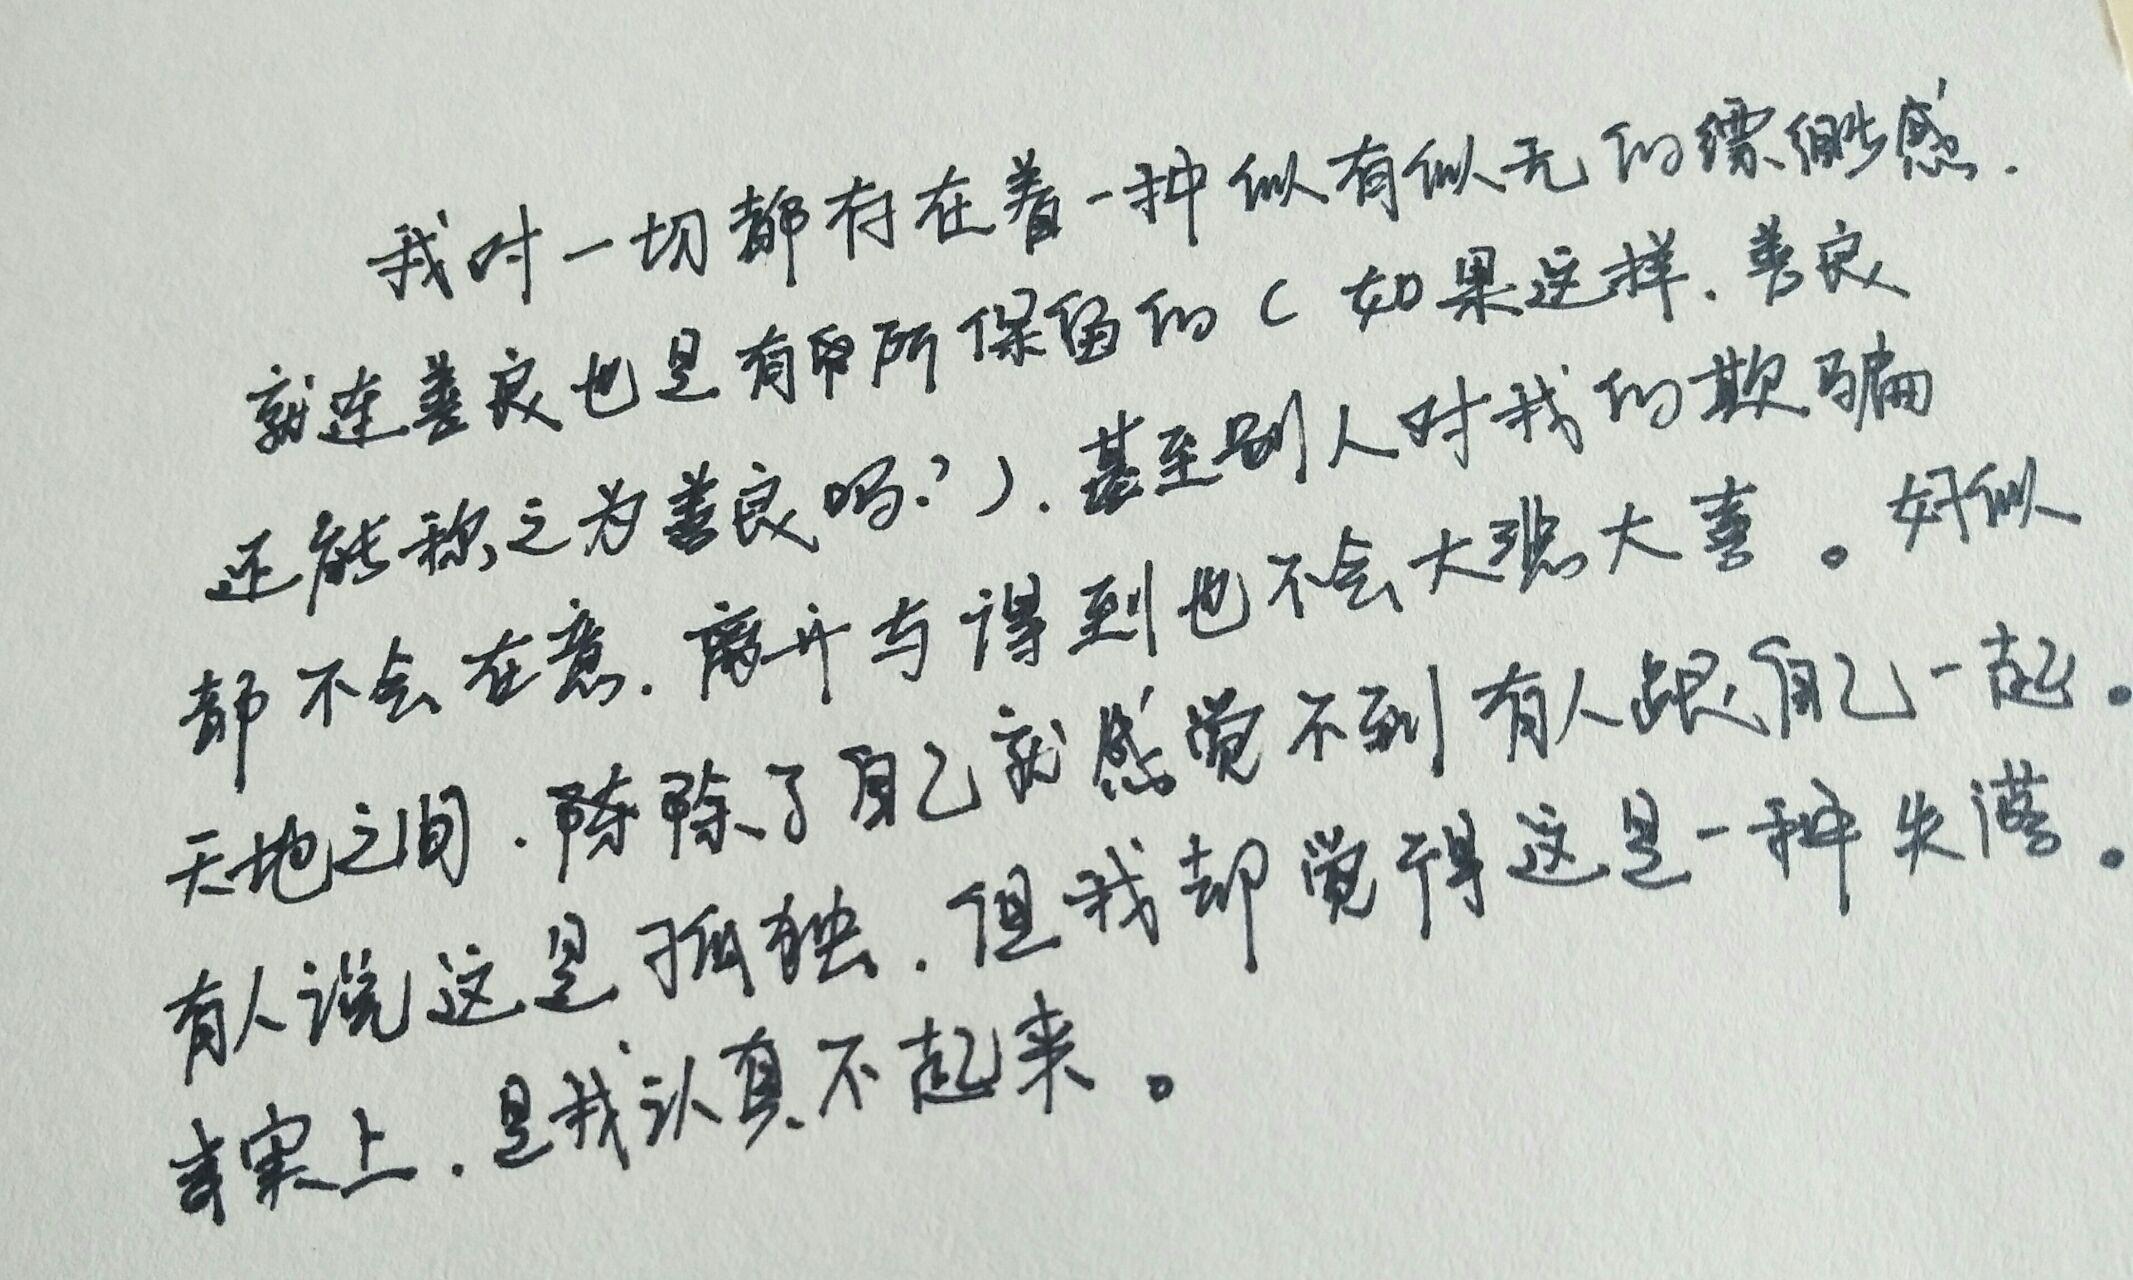 我对一切都存在着一种似有似无的缥缈感.
就连善良也是有所保留的（如果这样.善良
还能称之为善良吗?）.甚至别人对我的欺骗
都不会在意.离开与得到也不会大悲大喜。好似
天地之间.除了自己就感觉不到有人跟自己一起。
有人说这是孤独.但我却觉得这是一种失落。
事实上.是我认真不起来。